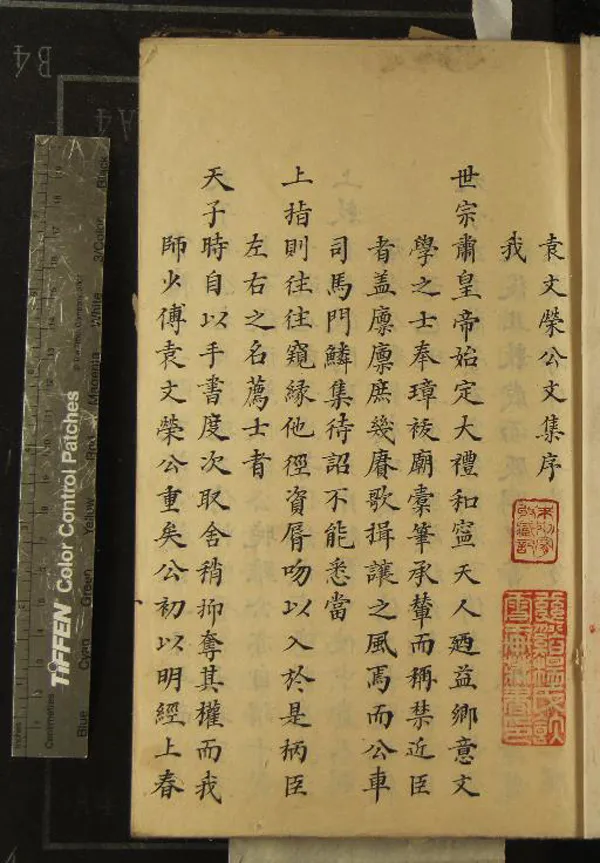 袁文榮公文集序
我
世宗肅皇帝始定大禮和寍天人廼益鄉意文
學之士奉璋祓廟橐筆承輦而稱禁近臣
者盖廩廩庶幾賡歌揖讓之風焉而公車
司馬門鱗集待詔不能悉當
上指則往往窺緣他徑資脣吻以入於是柄臣
左右之名薦士者
天子時自以手書度次取舍稍抑奪其權而我
師少傅袁文榮公重矣公初以明經上春
B4
A4
TIFFEN Color Control Patches
Blue
Cyan
Green
Yellow
Red
Magenta
White
3/Color
Black
Inches
Centimetres